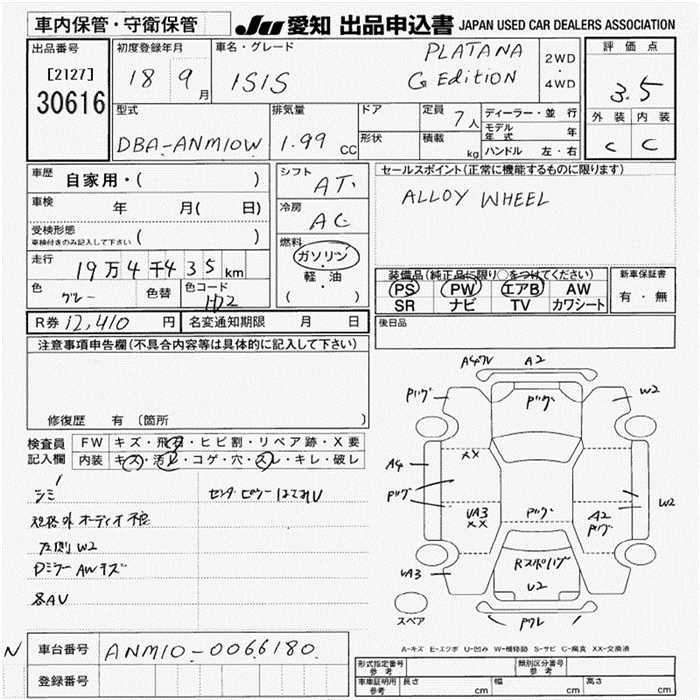 車内保管・守衛保管
JU 愛知 出品申込書 JAPAN USED CAR DEALERS ASSOCIATION
出品番号
[2127]
30616
初度登録年月
18 9月
車名・グレード
ISIS
PLATANA
G EDITION
2WD
・
4WD
評価点
3.5
外装 内装
C C
型式
DBA-ANM10W
排気量
1.99 CC
ドア
形状
定員 7人
積載 kg
ディーラー・並行
モデル年式 年
ハンドル 左・右
車歴 自家用・( )
車検 年 月( 日)
受検形態
車検付きのみ記入して下さい ( )
走行 19万4千435km
色 グレー 色替 色コード 1D2
シフト AT
冷房 AC
燃料
ガソリン
・
軽・油
( )
セールスポイント(正常に機能するものに限ります)
ALLOY WHEEL
装備品(純正品に限り○をつけてください)
PS PW エアB AW
SR ナビ TV カワシート
新車保証書
有・無
R券 12,410 円 名変通知期限 月 日
後日品
注意事項申告欄(不具合内容等は具体的に記入して下さい)
修復歴 有 〔箇所 〕
検査員記入欄
FW キズ・飛石・ヒビ割・リペア跡・X要
内装 キズ・汚レ・コゲ・穴・スレ・キレ・破レ
シミ
規格外オーディオ不良
左側W2
AWキズ
A4 A2
W2
A4
XX
VA3
XX
A2
W2
VA3
Rスポ
スペア
A-キズ E-エクボ U-凹み W-補修跡 S-サビ C-腐食 XX-交換済
N
車台番号 ANM10-0066180
登録番号
形式指定番号 参考
類別区分番号 参考
車庫証明用 参考 長さ cm 幅 cm 高さ cm